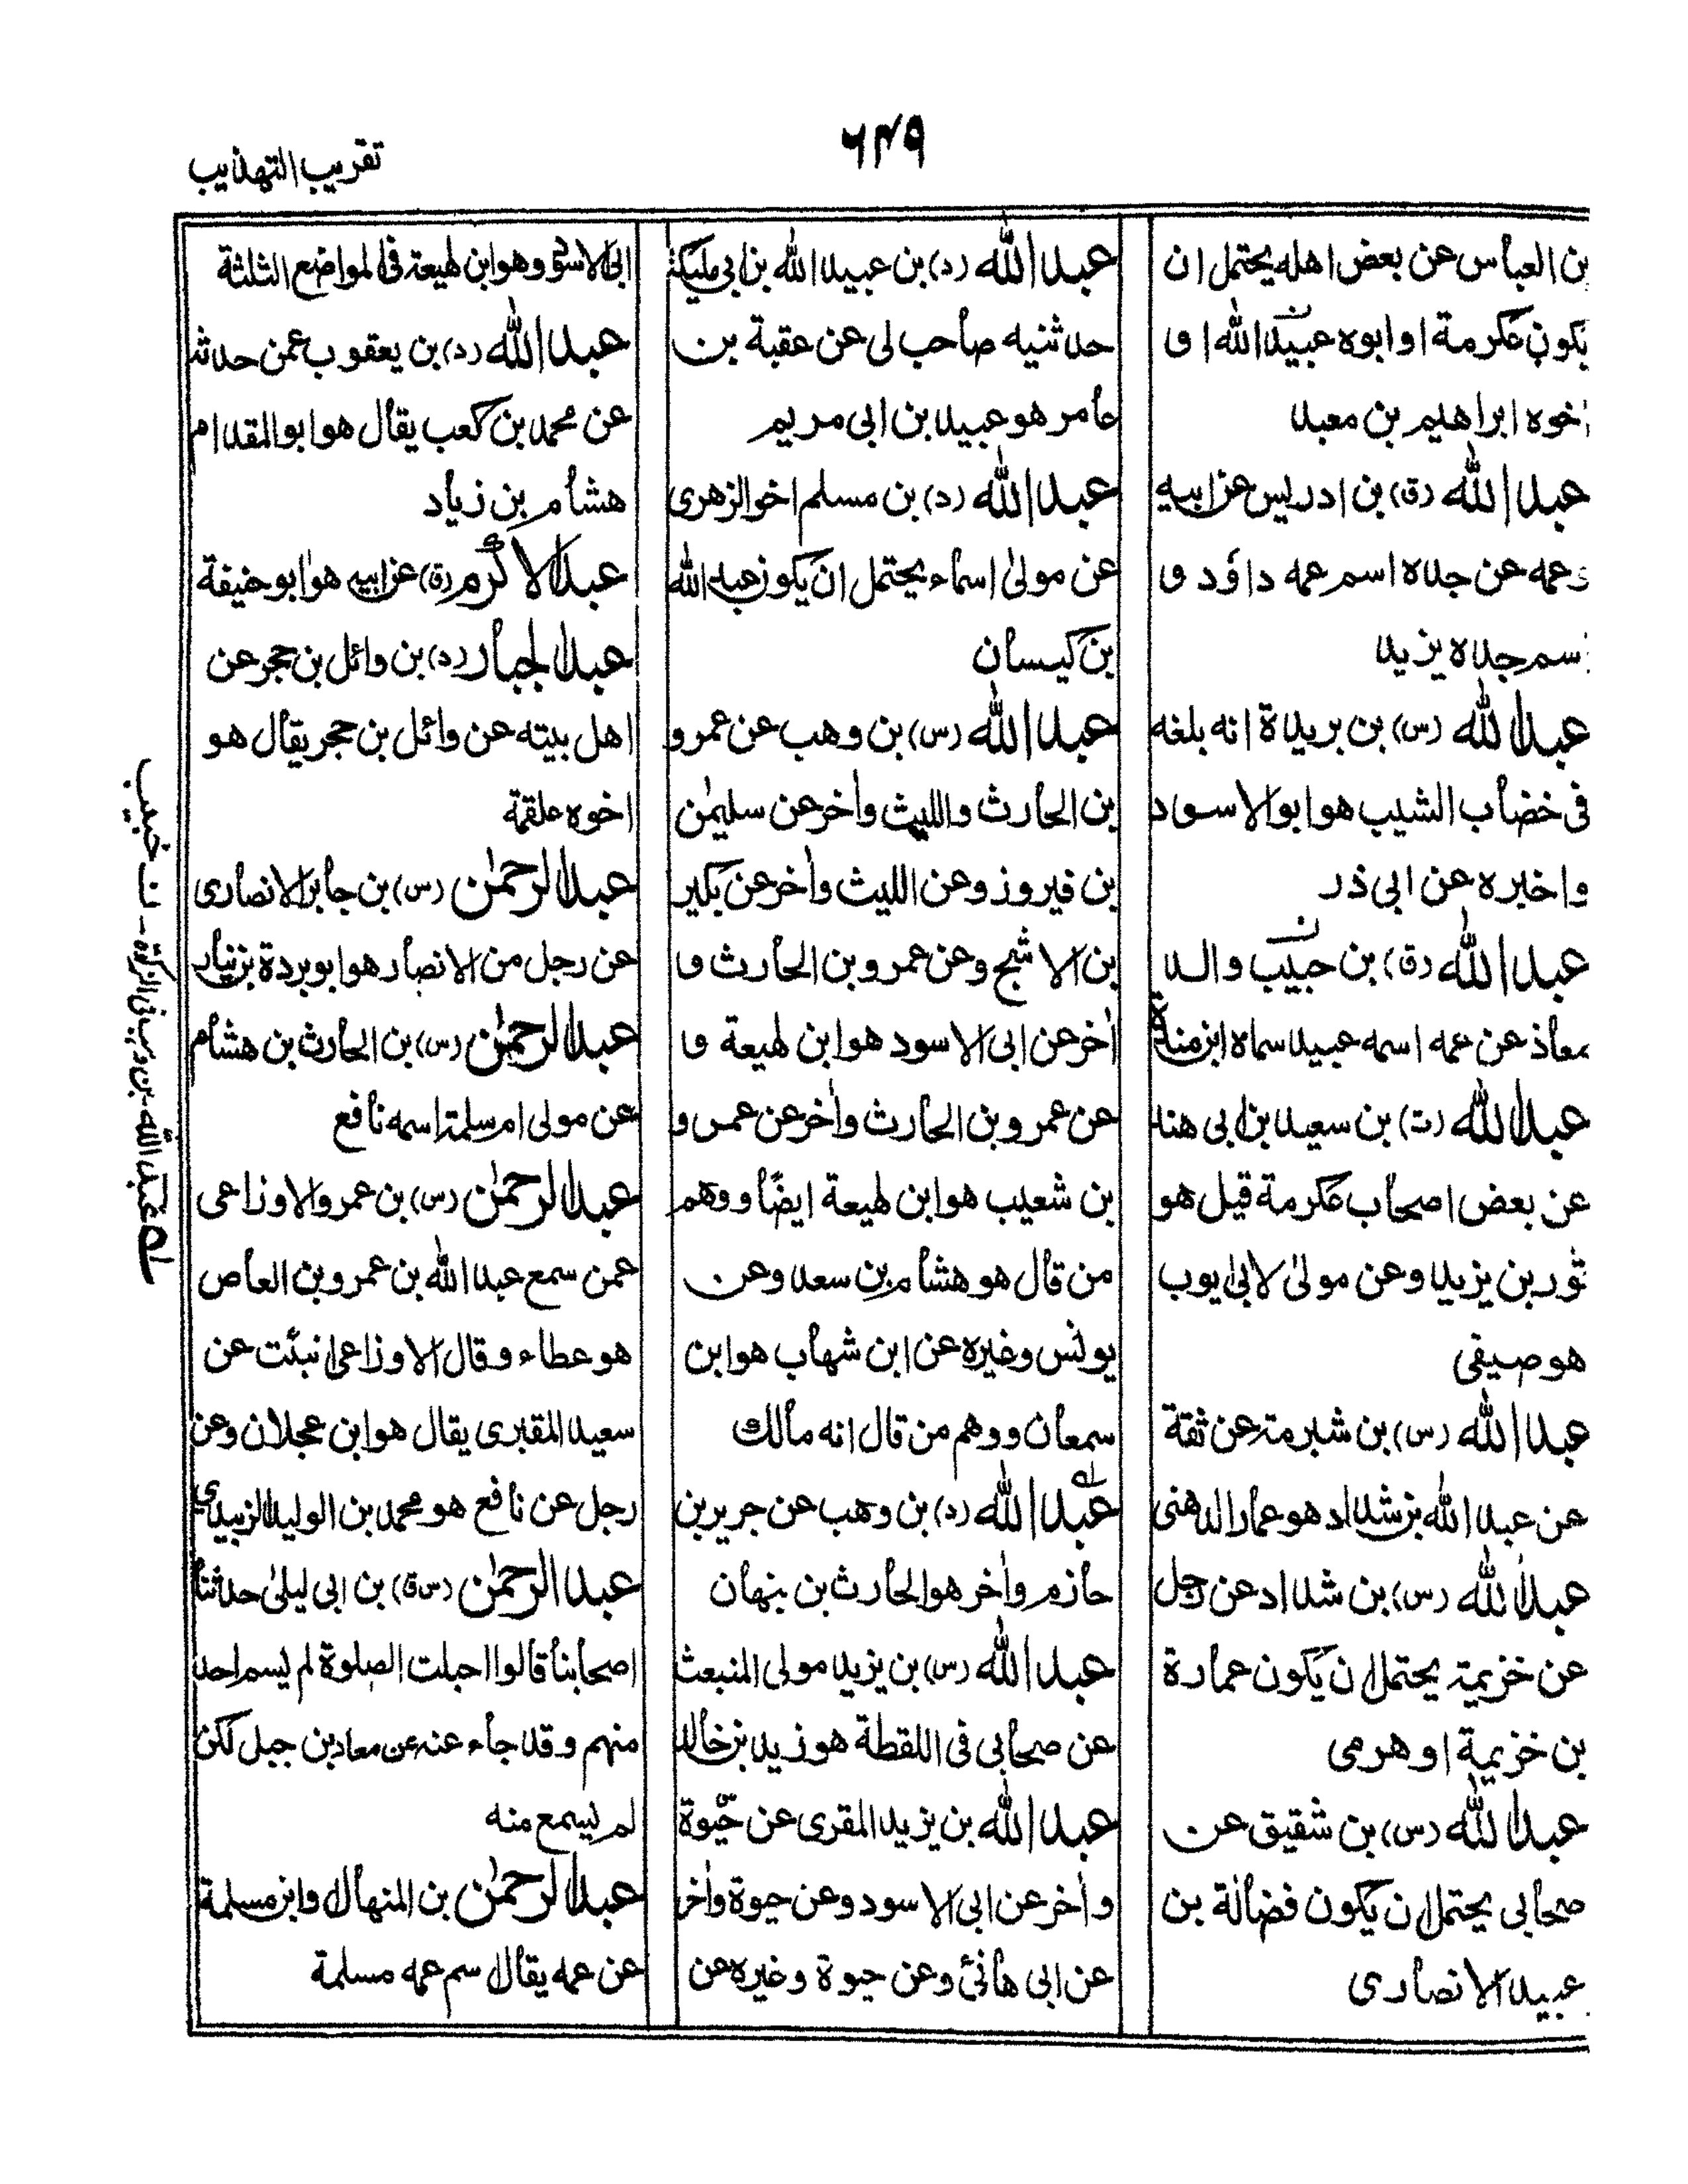 ۶۴۹
تقريب التهذيب
بن العباس عن بعض اهله يحتمل ان
يكون عكرمة او ابوه عبيد الله او
اخوه ابراهيم بن معبد
عبد الله (ق) بن ادريس عن ابيه
وعمه عن جده اسم عمه داؤد و
اسم جده يزيد
عبد الله (س) بن بريدة انه بلغه
فى خضاب الشيب هو ابو الاسود
واخبره عن ابى ذر
عبد الله (ق) بن حبيب والد
معاذ عن عمه اسمه عبيد سماه ابن مندة
عبد الله (ت) بن سعيد بن ابى هند
عن بعض اصحاب عكرمة قيل هو
ثور بن يزيد وعن مولىٰ لابى ايوب
هو صيفى
عبد الله (س) بن شبرمة عن ثقة
عن عبد الله بن شداد هو عمار الدهنى
عبد الله (س) بن شداد عن رجل
عن خزيمة يحتمل ان يكون عمارة
بن خزيمة او هرمى
عبد الله (س) بن شقيق عن
صحابى يحتمل ان يكون فضالة بن
عبيد الانصارى
عبد الله (د) بن عبيد الله بن ابى مليكة
حدثنيه صاحب لى عن عقبة بن
عامر هو عبيد بن ابى مريم
عبد الله (د) بن مسلم اخو الزهرى
عن مولىٰ اسماء يحتمل ان يكون عبد الله
بن كيسان
عبد الله (س) بن وهب عن عمرو
بن الحارث والليث واٰخر عن سليمٰن
بن فيروز وعن الليث واٰخر عن بكير
بن الاشج وعن عمرو بن الحارث و
اٰخر عن ابى الاسود هو ابن لهيعة و
عن عمرو بن الحارث واٰخر عن عمرو
بن شعيب هو ابن لهيعة ايضًا ووهم
من قال هو هشام بن سعد وعن
يونس وغيره عن ابن شهاب هو ابن
سمعان ووهم من قال انه مالك
عبد الله (د) بن وهب عن جرير بن
حازم واٰخر هو الحارث بن بنهان
عبد الله (س) بن يزيد مولى المنبعث
عن صحابى فى اللقطة هو زيد بن خالد
عبد الله بن يزيد المقرى عن حيوة
واٰخر عن ابى الاسود وعن حيوة واٰخر
عن ابى هانئ وعن حيوة وغيره عن
ابى الاسود وهو ابن لهيعة فى المواضع الثلثة
عبد الله (د) بن يعقوب عمن حدثه
عن محمد بن كعب يقال هو ابو المقدام
هشام بن زياد
عبد الاكرم (ق) عن ابيه هو ابو حنيفة
عبد الجبار (د) بن وائل بن حجر عن
اهل بيته عن وائل بن حجر يقال هو
اخوه علقمة
عبد الرحمٰن (س) بن جابر الانصارى
عن رجل من الانصار هو ابو بردة بن نيار
عبد الرحمٰن (س) بن الحارث بن هشام
عن مولى ام سلمة اسمه نافع
عبد الرحمٰن (س) بن عمرو الاوزاعى
عمن سمع عبد الله بن عمرو بن العاص
هو عطاء وقال الاوزاعى انبئت عن
سعيد المقبرى يقال هو ابن عجلان وعن
رجل عن نافع هو محمد بن الوليد الزبيدى
عبد الرحمٰن (س ق) بن ابى ليلىٰ حدثنا
اصحابنا قالوا احيلت الصلوة لم يسم احد
منهم وقد جاء عنه عن معاذ بن جبل لكن
لم يسمع منه
عبد الرحمٰن بن المنهال وابن مسلمة
عن عمه يقال سم عمه مسلمة
له عبد الله بن وهب فى الزكوة - ن خبيب